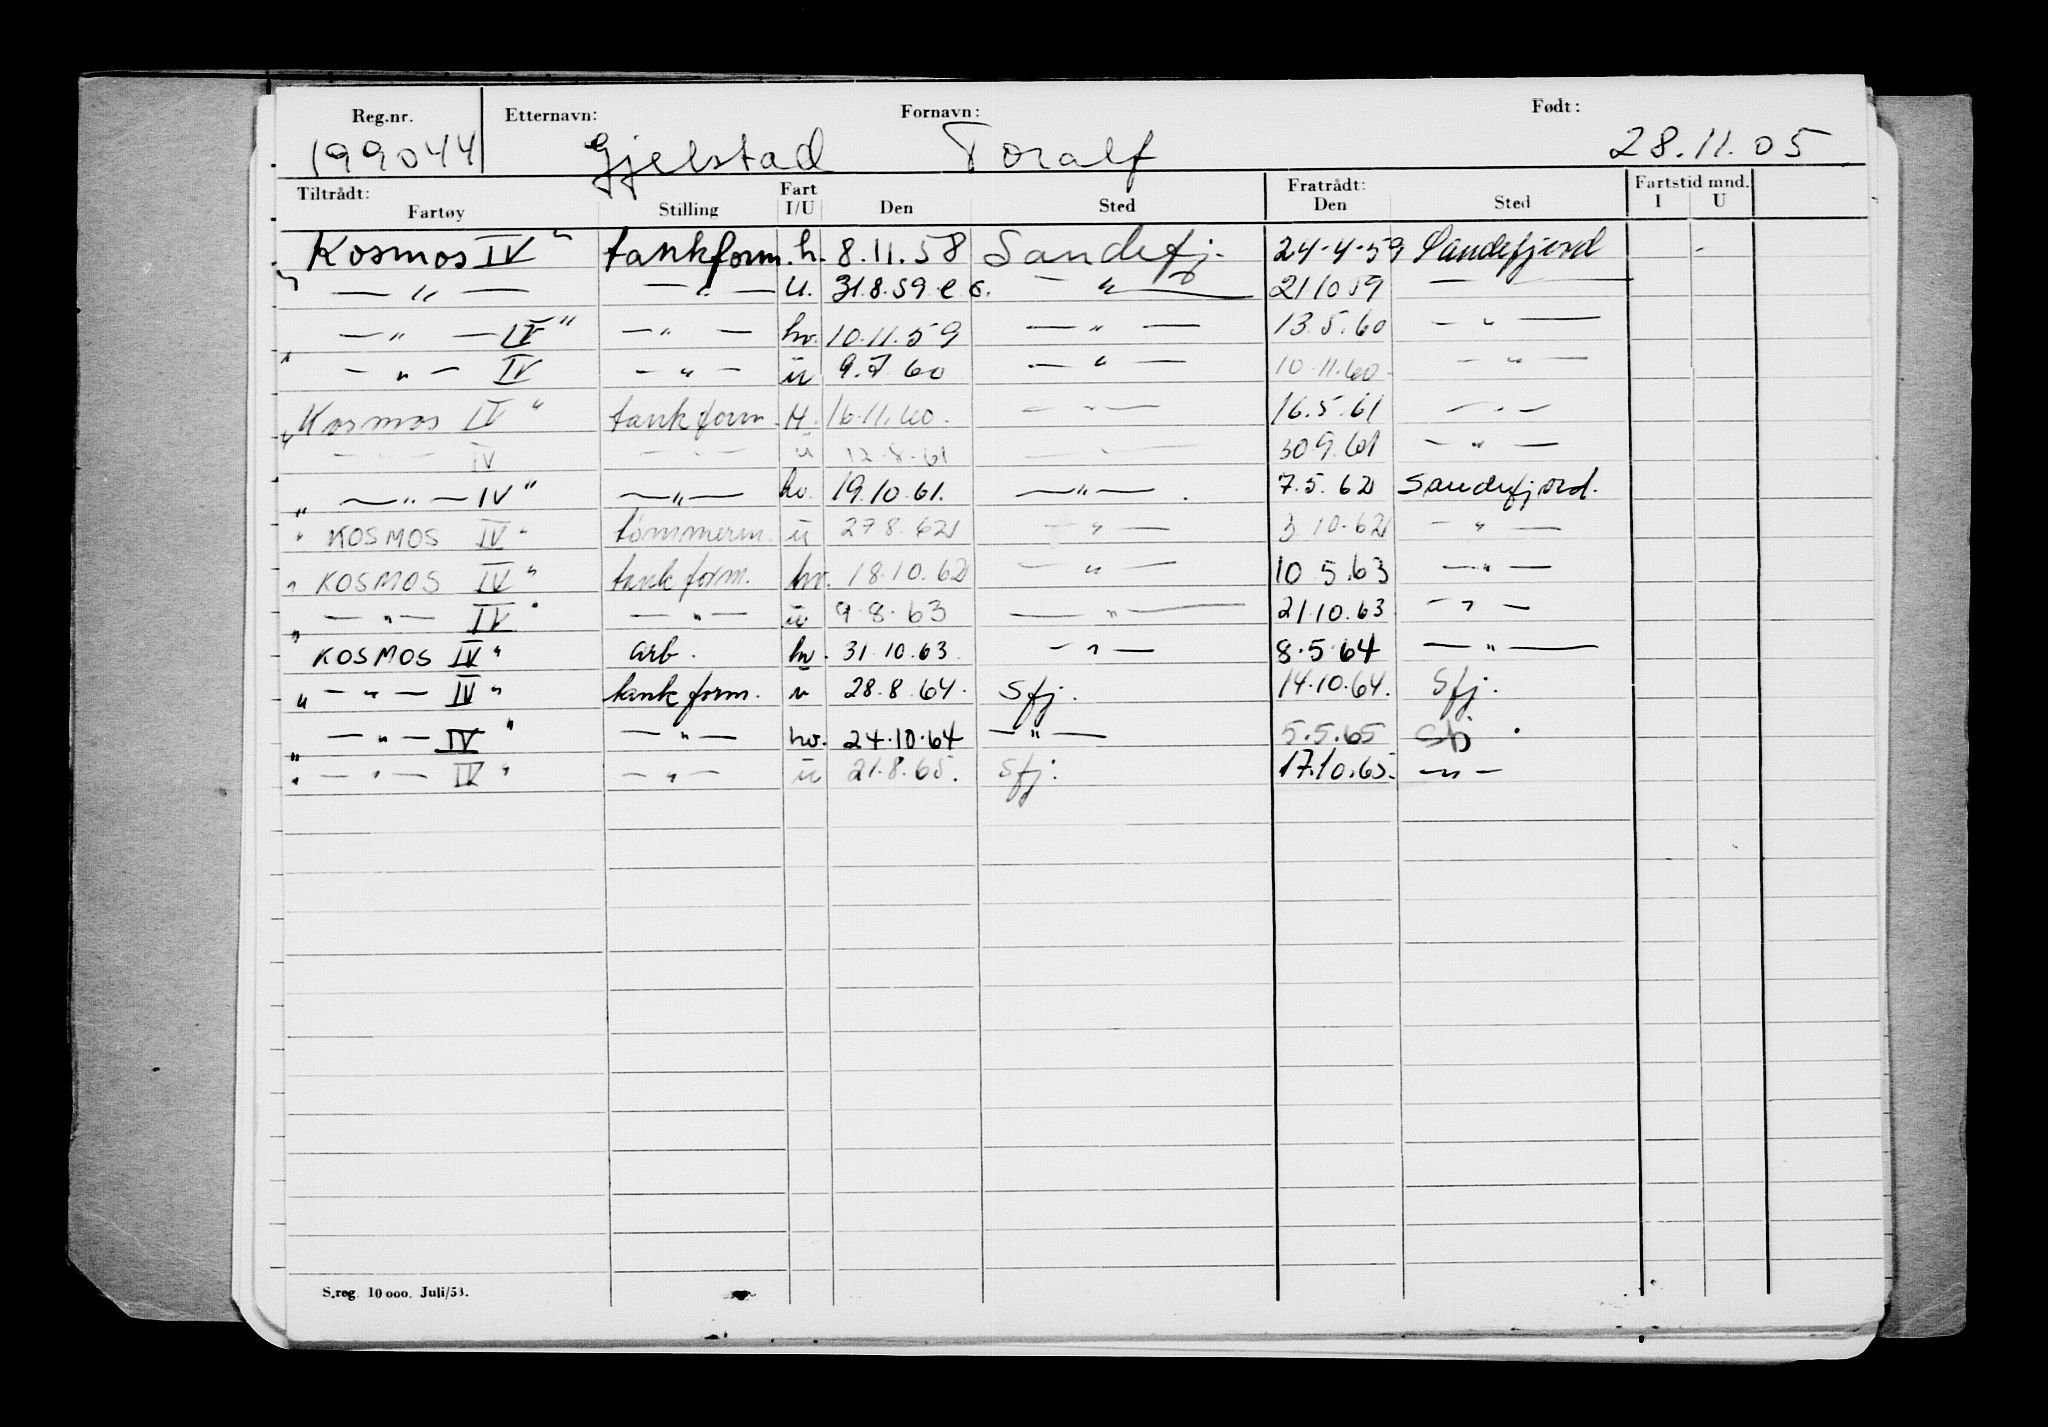 Reg.nr. Etternavn: Fornavn: Født:
199044 Gjelstad Toralf 28.11.05
Tiltrådt: Fart Fratrådt: Fartstid mnd.
Fartøy Stilling I/U Den Sted Den Sted I U
Kosmos IV" tankform. h. 8.11.58 Sandefj. 24-4-59 Sandefjord
" — " — — " — U. 31.8.59 — " — 21 10 59 —
— " — IV" — " — hv. 10.11.59 — " — 13.5.60 — " —
" — " — IV — " — u 9.7.60 — " — 10.11.60 — " —
"Kosmos IV" tankform. H. 16.11.60. — " — 16.5.61 — " —
— " — IV — " — u 12.8.61 — " — 30.9.61 — " —
" — " — IV" — " — hv. 19.10.61. — " — 7.5.62 Sandefjord.
" KOSMOS IV" tømmerm. u 27 8.62 — " — 3 10.62 — " —
" KOSMOS IV" tank form. hv. 18.10.62 — " — 10 5.63 — " —
" — " — IV" — " — u 9.8.63 — " — 21.10.63 — " —
" KOSMOS IV" arb. hv. 31.10.63. — " — 8.5.64 — " —
" — " — IV" tank form. u 28.8.64. Sfj. 14.10.64. Sfj.
" — " — IV" — " — hv. 24.10.64 — " — 5.5.65 Sfj.
" — " — IV" — " — u 21.8.65. Sfj. 17.10.65. — " —
S.reg. 10 000. Juli/53.